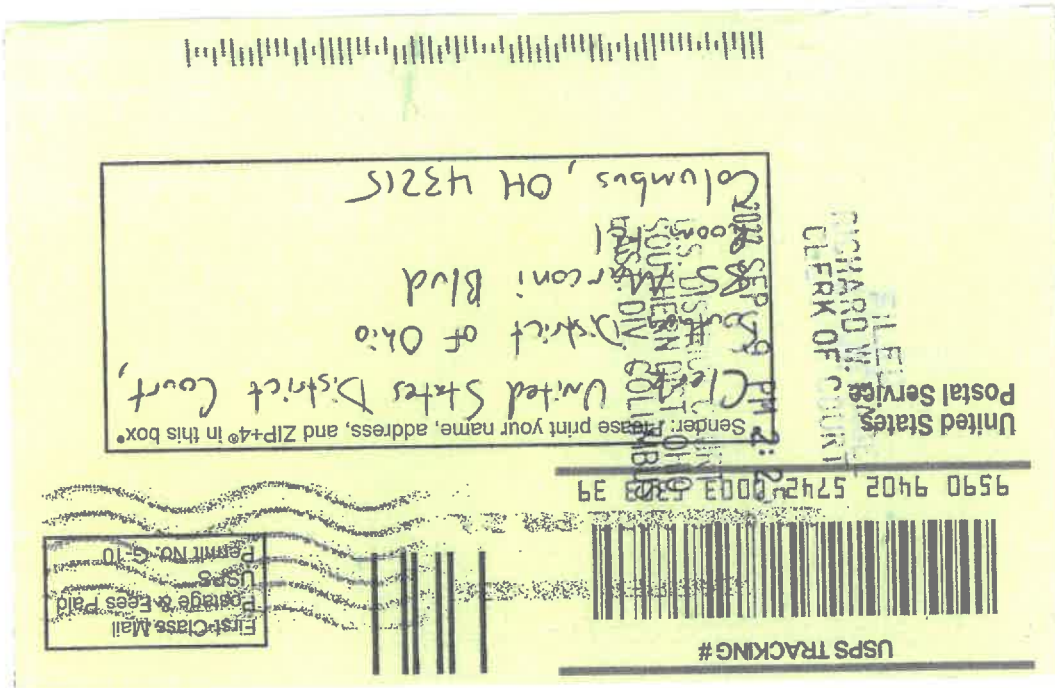 USPS TRACKING #
First-Class Mail
Postage & Fees Paid
USPS
Permit No. G-10
9590 9402 5742 0003 39
United States
Postal Service
Sender: Please print your name, address, and ZIP+4® in this box•
Clerk United States District Court,
District of Ohio
85 Marconi Blvd
Room
Columbus, OH 43215
FILED
RICHARD W.
CLERK OF COURT
2022 SEP -9 PM 2:
U.S. DISTRICT COURT
SOUTHERN DIST. OHIO
EAST. DIV. COLUMBUS